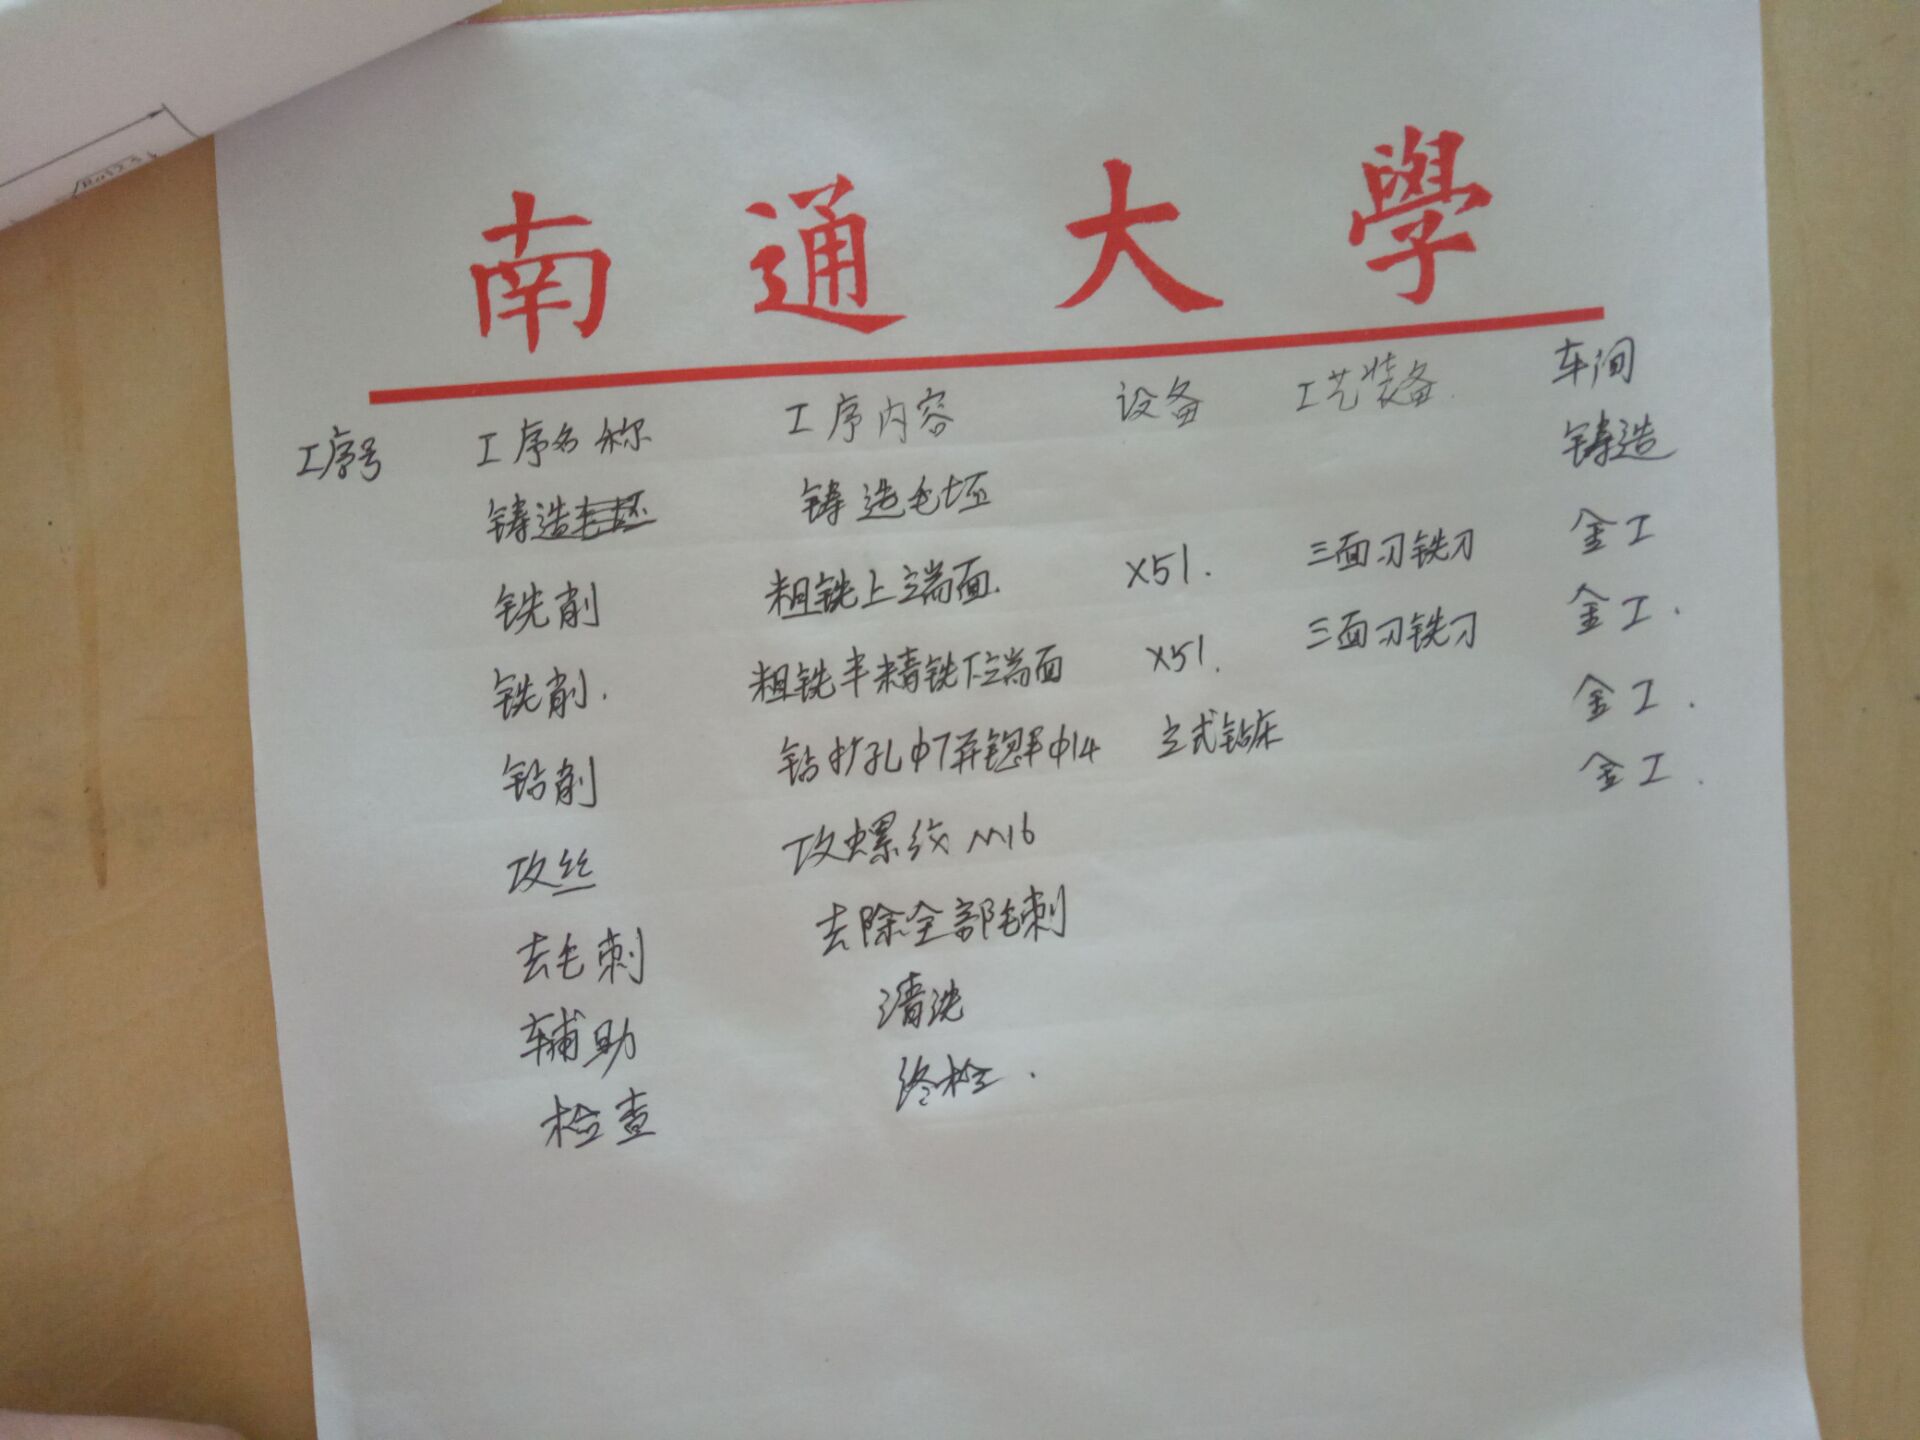 南通大學
工序号 工序名称 工序内容 设备 工艺装备 车间
铸造 铸造毛坯 铸造
铣削 粗铣上端面. X51. 三面刃铣刀 金工
铣削. 粗铣半精铣下端面 X51. 三面刃铣刀 金工.
钻削 钻扩孔φ7并锪平φ14 立式钻床 金工.
攻丝 攻螺纹M16 金工.
去毛刺 去除全部毛刺
辅助 清洗
检查 终检.